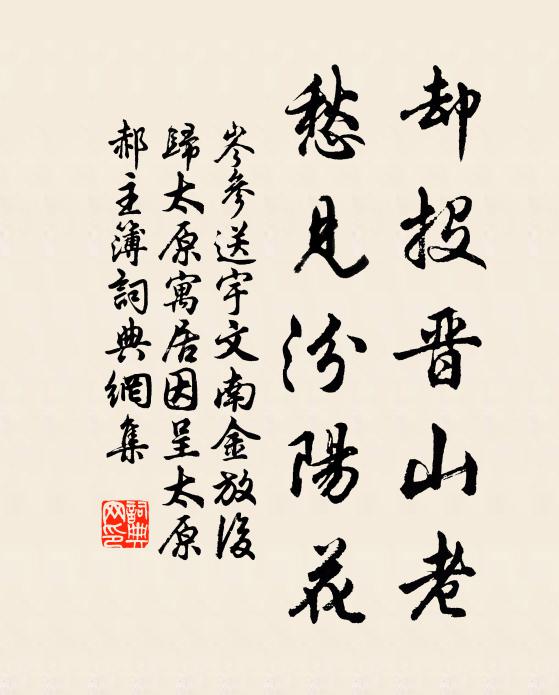 却投晋山老
愁見汾陽花
岑參送宇文南金放後
歸太原寓居因呈太原
郝主簿詞典網集
詞典
网印